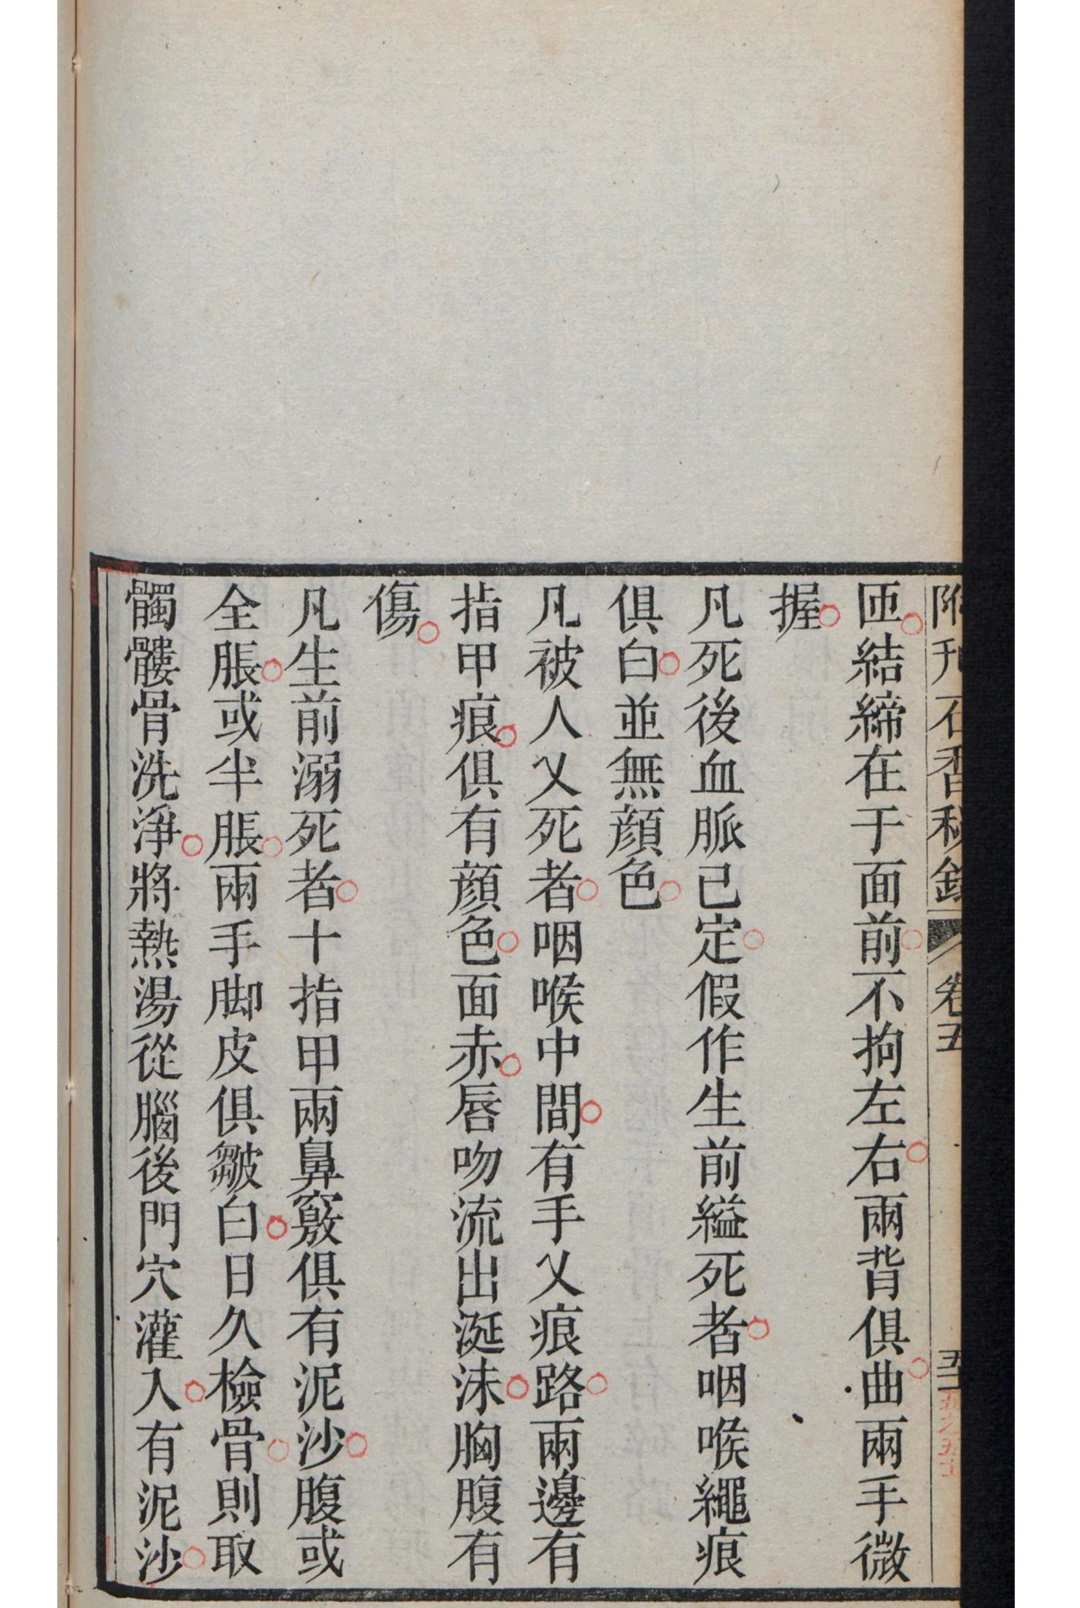 附刊石香秘錄 卷五
匝結締在于面前不拘左右兩背俱曲兩手微
握
凡死後血脈已定假作生前縊死者咽喉繩痕
俱白並無顔色
凡被人乂死者咽喉中間有手乂痕路兩邊有
指甲痕俱有顔色面赤唇吻流出涎沫胸腹有
傷
凡生前溺死者十指甲兩鼻竅俱有泥沙腹或
全脹或半脹兩手脚皮俱皺白日久檢骨則取
髑髏骨洗淨將熱湯從腦後門穴灌入有泥沙